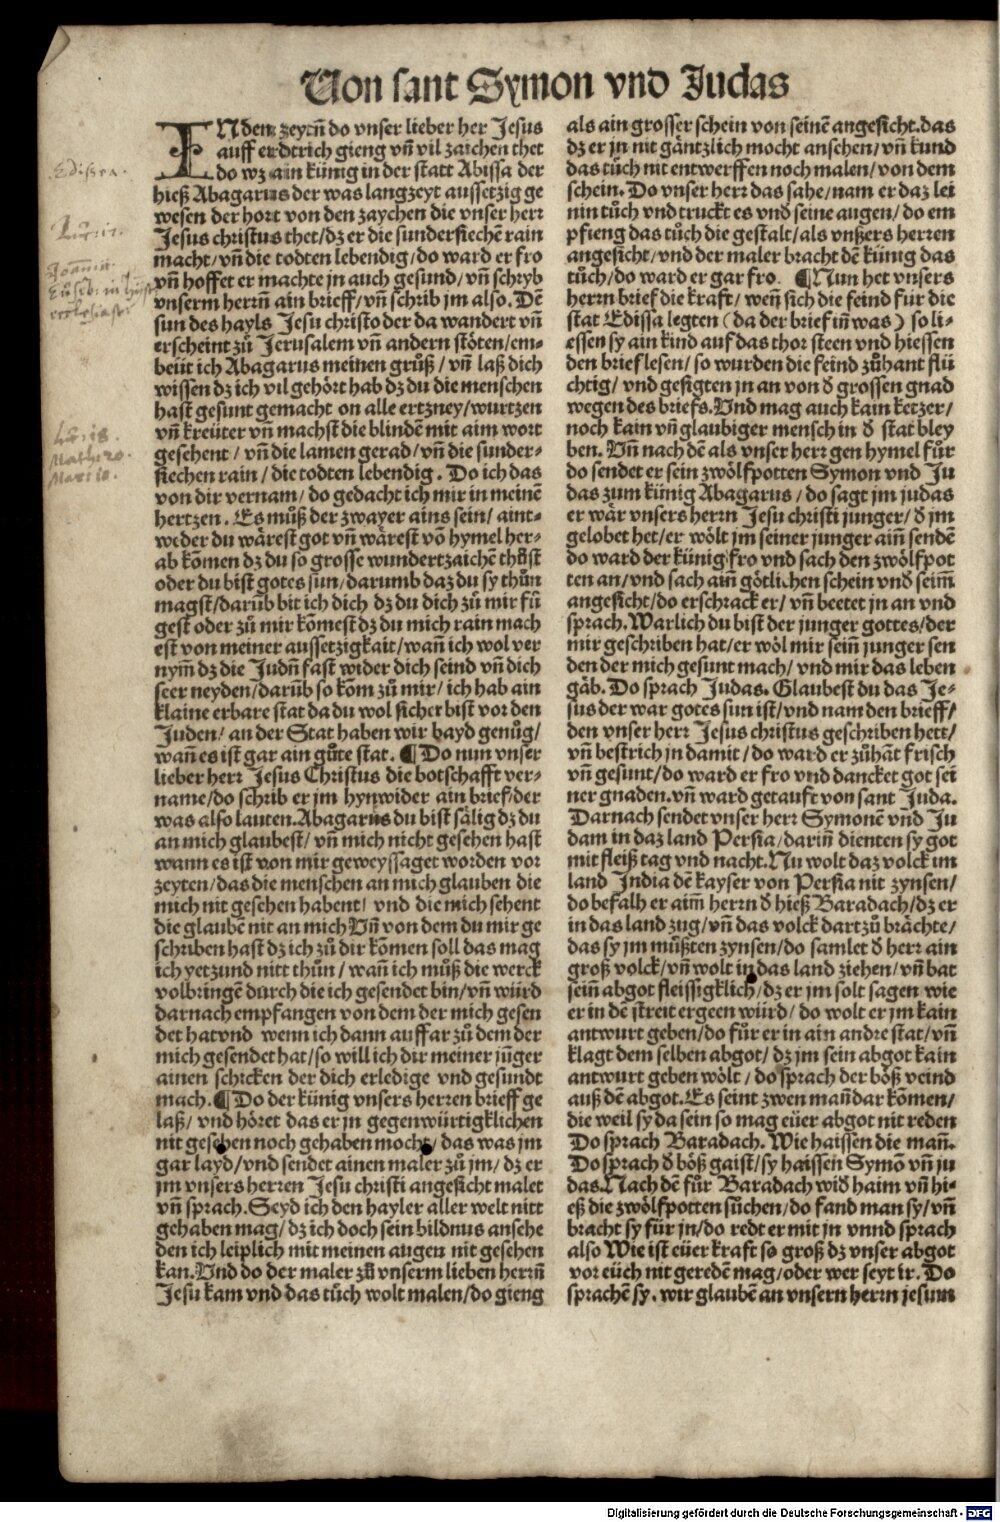 Von sant Symon vnd Judas
IN den zeytñ do vnser lieber her Jesus
auff erdtrich gieng vñ vil zaichen thet
do wz ain künig in der statt Abissa der
hieß Abagarus der was langzeyt aussetzig ge
wesen der hort von den zaychen die vnser herr
Jesus christus thet/dz er die sundersiechē rain
macht/vñ die todten lebendig/do ward er fro
vñ hoffet er machte jn auch gesund/vñ schryb
vnserm herrñ ain brieff/vñ schrib jm also. Dē
sun des hayls Jesu christo der da wandert vñ
erscheint zů Jerusalem vñ andern stöten/em-
beüt ich Abagarus meinen grůß/vñ laß dich
wissen dz ich vil gehört hab dz du die menschen
hast gesunt gemacht on alle ertzney/wurtzen
vñ kreüter vñ machst die blindē mit aim wort
gesehent/vñ die lamen gerad/vñ die sunder-
siechen rain/die todten lebendig. Do ich das
von dir vernam/do gedacht ich mir in meinē
hertzen. Es můß der zwayer ains sein/aint-
weder du wärest got vñ wärest vō hymel her-
ab kōmen dz du so grosse wundertzaichē thůst
oder du bist gotes sun/darumb daz du sy thůn
magst/darūb bit ich dich dz du dich zů mir fü
gest oder zů mir kōmest dz du mich rain mach
est von meiner aussetzigkait/wañ ich wol ver
nym̄ dz die Judñ fast wider dich seind vñ dich
seer neyden/darūb so kom zů mir/ich hab ain
klaine erbare stat da du wol sicher bist vor den
Juden/an der Stat haben wir bayd genůg/
wañ es ist gar ain gůte stat. ¶Do nun vnser
lieber herr Jesus Christus die botschafft ver-
name/do schrib er jm hynwider ain brief/der
was also lauten.Abagarus du bist sälig dz du
an mich glaubest/vñ mich nicht gesehen hast
wann es ist von mir geweyssaget worden vor
zeyten/das die menschen an mich glauben die
mich nit gesehen habent/vnd die mich sehent
die glaubē nit an mich Vñ von dem du mir ge
schriben hast dz ich zů dir kōmen soll das mag
ich yetzund nitt thůn/wañ ich můß die werck
volbringē durch die ich gesendet bin/vñ würd
darnach empfangen von dem der mich gesen
det hat vnd wenn ich dann auffar zů dem der
mich gesendet hat/so will ich dir meiner jūger
ainen schicken der dich erledige vnd gesundt
mach.¶Do der künig vnsers herren brieff ge
laß/vnd höret das er jn gegenwürtigklichen
nit gesehen noch gehaben mocht/das was jm
gar layd/vnd sendet ainen maler zů jm/dz er
jm vnsers herren Jesu christi angesicht malet
vñ sprach.Seyd ich den hayler aller welt nitt
gehaben mag/dz ich doch sein bildnus ansehe
den ich leiplich mit meinen augen nit gesehen
kan.Vnd do der maler zů vnserm lieben herrñ
Jesu kam vnd das tůch wolt malen/do gieng
als ain grosser schein von seinē angesicht.das
dz er jn nit gäntzlich mocht ansehen/vñ kund
das tůch nit entwerffen noch malen/von dem
schein. Do vnser herr das sahe/nam er daz lei
nin tůch vnd truckt es vnd seine augen/do em
pfieng das tůch die gestalt/als vnßers herren
angesicht/vnd der maler bracht dē künig das
tůch/do ward er gar fro. ¶Nun het vnsers
herrn brief die kraft/weñ sich die feind für die
stat Edissa legten (da der brief iñ was) so li-
essen sy ain kind auf das thor steen vnd hiessen
den brief lesen/so wurden die feind zůhant flü
chtig/vnd gesigten jn an von d̄ grossen gnad
wegen des briefs.Vnd mag auch kain ketzer/
noch kain vñ glaubiger mensch in d̄ stat bley
ben. Vñ nach dē als vnser herr gen hymel fůr
do sendet er sein zwölfpotten Symon vnd Ju
das zum künig Abagarus/do sagt jm judas
er wär vnsers herrn Jesu christi junger/d̄ jm
gelobet het/er wölt jm seiner junger aiñ sendē
do ward der künig fro vnd sach den zwölfpot
ten an/vnd sach aiñ götlichen schein vnd̄ seim̄
angesicht/do erschrack er/vñ beetet jn an vnd
sprach.Warlich du bist der junger gottes/der
mir geschriben hat/er wöl mir seiñ junger sen
den der mich gesunt mach/vnd mir das leben
gäb. Do sprach Judas. Glaubest du das Je-
sus der war gotes sun ist/vnd nam den brieff/
den vnser herr Jesus christus geschriben hett/
vñ bestrich jn damit/do ward er zůhāt frisch
vñ gesunt/do ward er fro vnd dancket got sei
ner gnaden.vñ ward getauft von sant Juda.
Darnach sendet vnser herr Symonē vnd Ju
dam in daz land Persia/dariñ dienten sy got
mit fleiß tag vnd nacht.Nu wolt daz volck im
land India dē kayser von Persia nit zynsen/
do befalh er aim̄ herrn d̄ hieß Baradach/dz er
in das land zug/vñ das volck dartzů brächte/
das sy jm můßten zynsen/do samlet d̄ herr ain
groß volck/vñ wolt in das land ziehen/vñ bat
seiñ abgot fleissigklich/dz er jm solt sagen wie
er in dē streit ergeen würd/do wolt er jm kain
antwurt geben/do fůr er in ain andre stat/vñ
klagt dem selben abgot/dz jm sein abgot kain
antwurt geben wölt/do sprach der böß veind
auß dē abgot.Es seint zwen mañdar kōmen/
die weil sy da sein so mag eüer abgot nit reden
Do sprach Baradach. Wie haissen die mañ.
Do sprach d̄ böß gaist/sy haissen Symō vñ ju
das.Nach dē fůr Baradach wid̄ haim vñ hi-
eß die zwölfpotten sůchen/do fand man sy/vñ
bracht sy für jn/do redt er mit jn vnnd sprach
also Wie ist eüer kraft so groß dz vnser abgot
vor eüch nit geredē mag/oder wer seyt ir. Do
sprachē sy.wir glaubē an vnsern herrn jesum
Digitalisierung gefördert durch die Deutsche Forschungsgemeinschaft - DFG